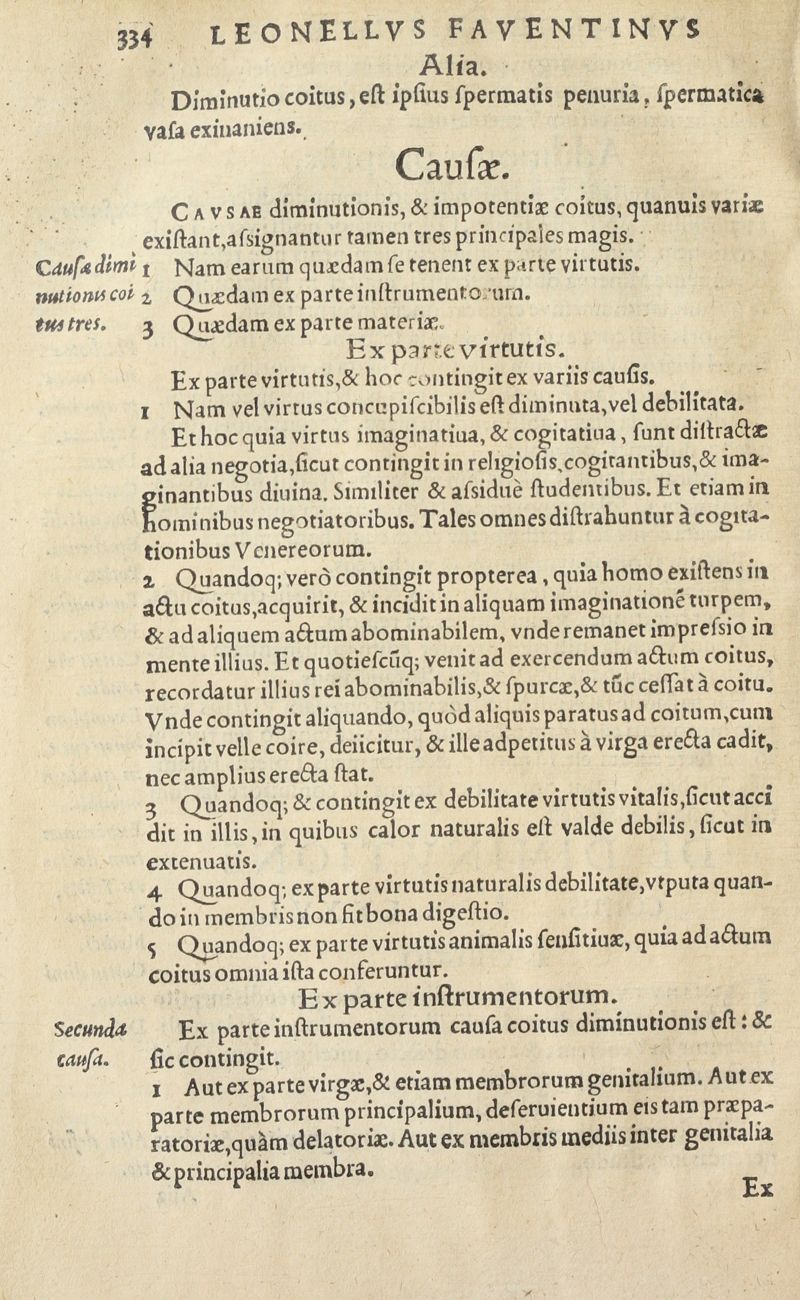 334 LEONELLVS FAVENTINVS
Alia.
Diminutio coitus, eſt ipſius ſpermatis penuria, ſpermatica
vaſa exinaniens.
Cauſæ.
CAVSAE diminutionis, & impotentiæ coitus, quanuis variæ
exiſtant, aſsignantur tamen tres principales magis.
Cauſæ dimi 1 Nam earum quædam ſe tenent ex parte virtutis.
nutionis coi 2 Quædam ex parte inſtrumentorum.
tus tres. 3 Quædam ex parte materiæ.
Ex parte virtutis.
Ex parte virtutis, & hoc contingit ex variis cauſis.
1 Nam vel virtus concupiſcibilis eſt diminuta, vel debilitata.
Et hoc quia virtus imaginatiua, & cogitatiua, ſunt diſtractæ
ad alia negotia, ſicut contingit in religioſis, cogitantibus, & ima-
ginantibus diuina. Similiter & aſsiduè ſtudentibus. Et etiam in
hominibus negotiatoribus. Tales omnes diſtrahuntur à cogita-
tionibus Venereorum.
2 Quandoq; verò contingit propterea, quia homo exiſtens in
actu coitus, acquirit, & incidit in aliquam imaginationē turpem,
& ad aliquem actum abominabilem, vnde remanet impreſsio in
mente illius. Et quotieſcūq; venit ad exercendum actum coitus,
recordatur illius rei abominabilis, & ſpurcæ, & tūc ceſſat à coitu.
Vnde contingit aliquando, quòd aliquis paratus ad coitum, cum
incipit velle coire, deiicitur, & ille adpetitus à virga erecta cadit,
nec amplius erecta ſtat.
3 Quandoq; & contingit ex debilitate virtutis vitalis, ſicut acci
dit in illis, in quibus calor naturalis eſt valde debilis, ſicut in
extenuatis.
4 Quandoq; ex parte virtutis naturalis debilitate, vtputa quan-
do in membris non fit bona digeſtio.
5 Quandoq; ex parte virtutis animalis ſenſitiuæ, quia ad actum
coitus omnia iſta conferuntur.
Ex parte inſtrumentorum.
Secunda Ex parte inſtrumentorum cauſa coitus diminutionis eſt: &
cauſa. ſic contingit.
1 Aut ex parte virgæ, & etiam membrorum genitalium. Aut ex
parte membrorum principalium, deſeruientium eis tam præpa-
ratoriæ, quàm delatoriæ. Aut ex membris mediis inter genitalia
& principalia membra.
Ex